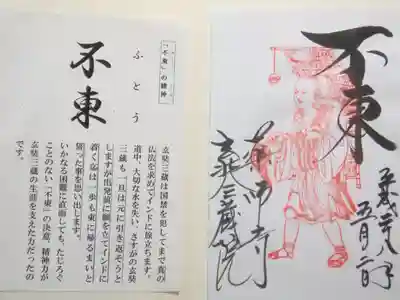 「不東」の精神
ふとう
不東
玄奘三蔵は国禁を犯してまで真の
仏法を求めてインドに旅立ちます。
道中、大切な水を失い、さすがの玄奘
三蔵も一旦は元に引き返そうと
しますが出発前に願を立てインドに
着く迄は一歩も東に帰るまいと
誓った事を思い出します。
いかなる困難に直面しても、たじろぐ
ことのない「不東」の決意、精神力が
玄奘三蔵の生涯を支えた力だったの
です。
不東
薬師寺
玄奘三蔵院